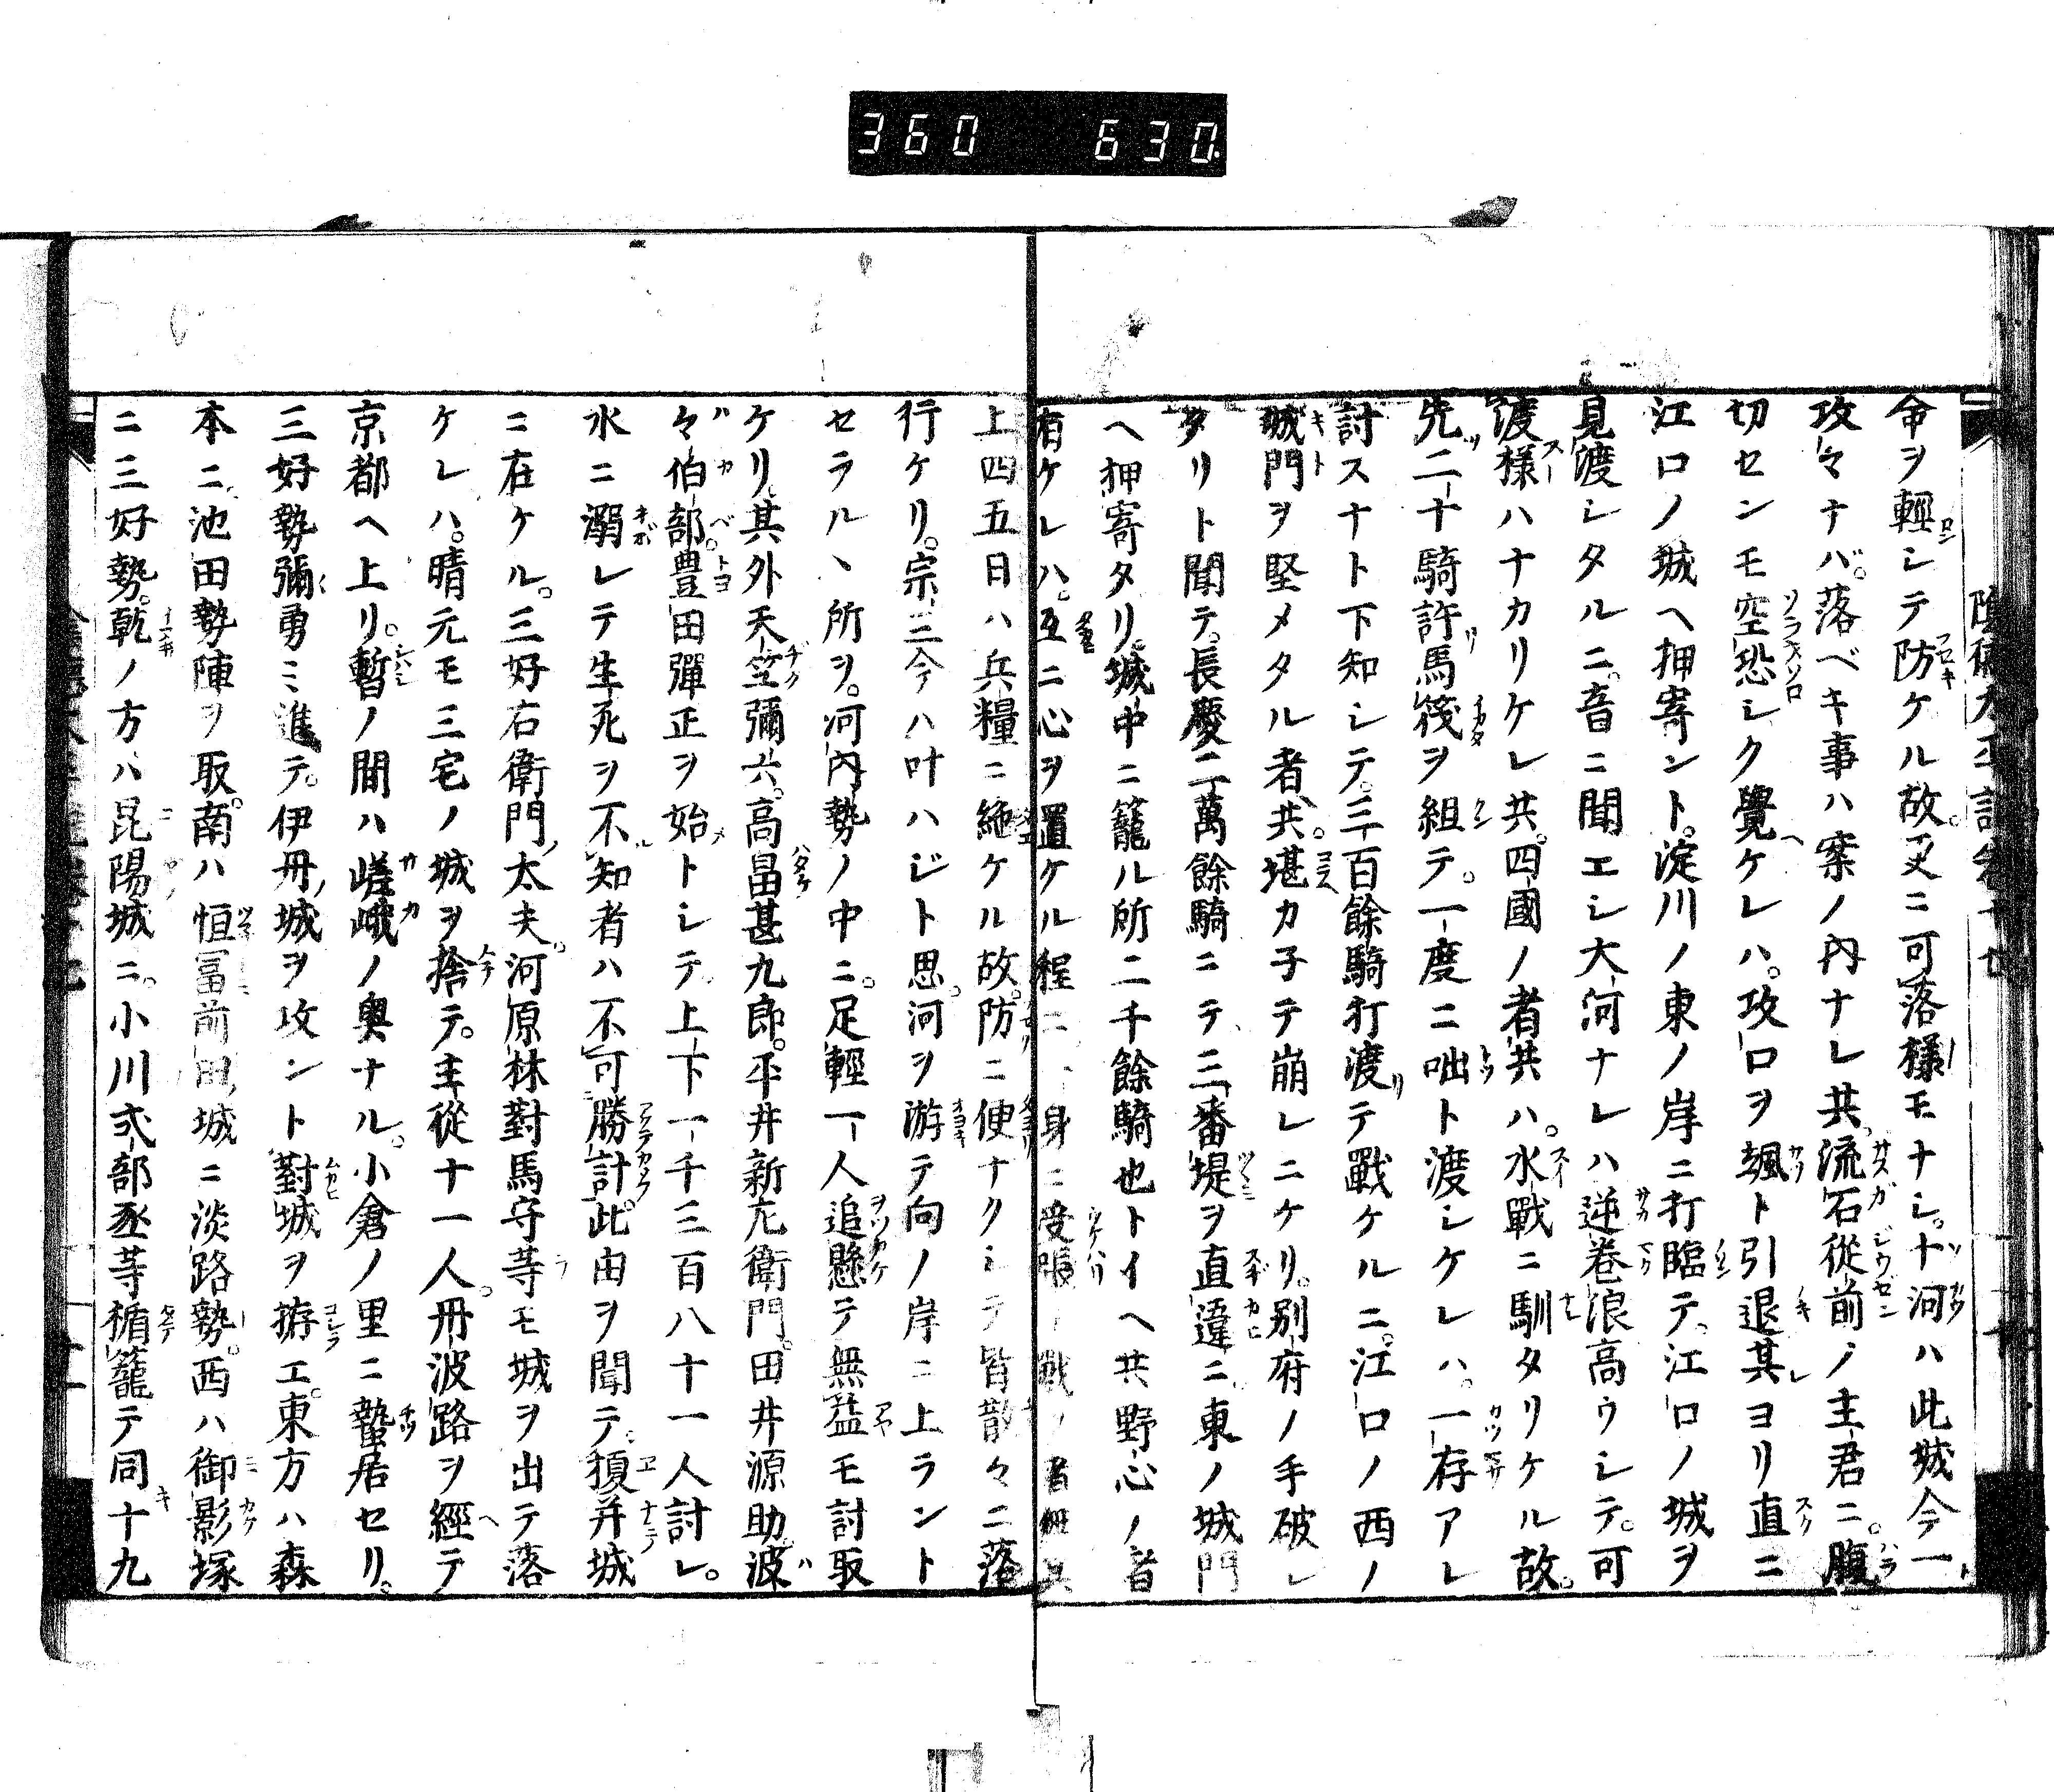 360 630
命ヲ輕シテ防ケル故。又ニ可落樣モナシ。十河ハ此城今一
攻々ナバ。落ベキ事ハ案ノ内ナレ共。流石從前ノ主君ニ。腹
切センモ空恐シク覺ケレハ。攻口ヲ颯ト引退其ヨリ直ニ
江口ノ城ヘ押寄ント。淀川ノ東ノ岸ニ打臨テ。江口ノ城ヲ
見渡シタルニ。音ニ聞エシ大河ナレハ逆巻浪高ウシテ。可
渡樣ハナカリケレ共。四國ノ者共ハ。水戰ニ馴タリケル故。
先二十騎許馬筏ヲ組テ。一度ニ咄ト渡シケレハ。一存アレ
討スナト下知シテ。三百餘騎打渡テ戰ケルニ。江口ノ西ノ
城門ヲ堅メタル者共。堪カ子テ崩レニケリ。別府ノ手破レ
タリト聞テ。長慶二萬餘騎ニテ、三番堤ヲ直違ニ。東ノ城門
ヘ押寄タリ。城中ニ籠ル所二千餘騎也トイヘ共野心ノ者
有ケレハ。互ニ心ヲ置ケル程ニ一身ニ受張戰ノ者無其
上四五日ハ兵糧ニ絶ケル故。防ニ便ナクシテ皆散々ニ落
行ケリ。宗三今ハ叶ハジト思。河ヲ游テ向ノ岸ニ上ラント
セラルヽ所ヲ。河内勢ノ中ニ。足輕一人追懸テ無益モ討取
ケリ。其外天竺彌六。高畠甚九郎。平井新左衛門。田井源助。波
々伯部。豊田彈正ヲ始トシテ。上下一千三百八十一人討レ。
水ニ溺レテ生死ヲ不知者ハ不可勝計。此由ヲ聞テ。榎并城
ニ在ケル。三好右衛門太夫。河原林對馬守等モ城ヲ出テ落
ケレハ。晴元モ三宅ノ城ヲ捨テ。主從十一人。丹波路ヲ經テ
京都ヘ上リ。暫ノ間ハ嵯峨ノ奥ナル。小倉ノ里ニ蟄居セリ。
三好勢彌勇ミ進テ。伊丹城ヲ攻ント對城ヲ拵エ。東方ハ森
本ニ。池田勢陣ヲ取。南ハ恒冨前田城ニ淡路勢。西ハ御影塚
ニ三好勢。乾ノ方ハ昆陽城ニ。小川式部丞等楯籠テ同十九